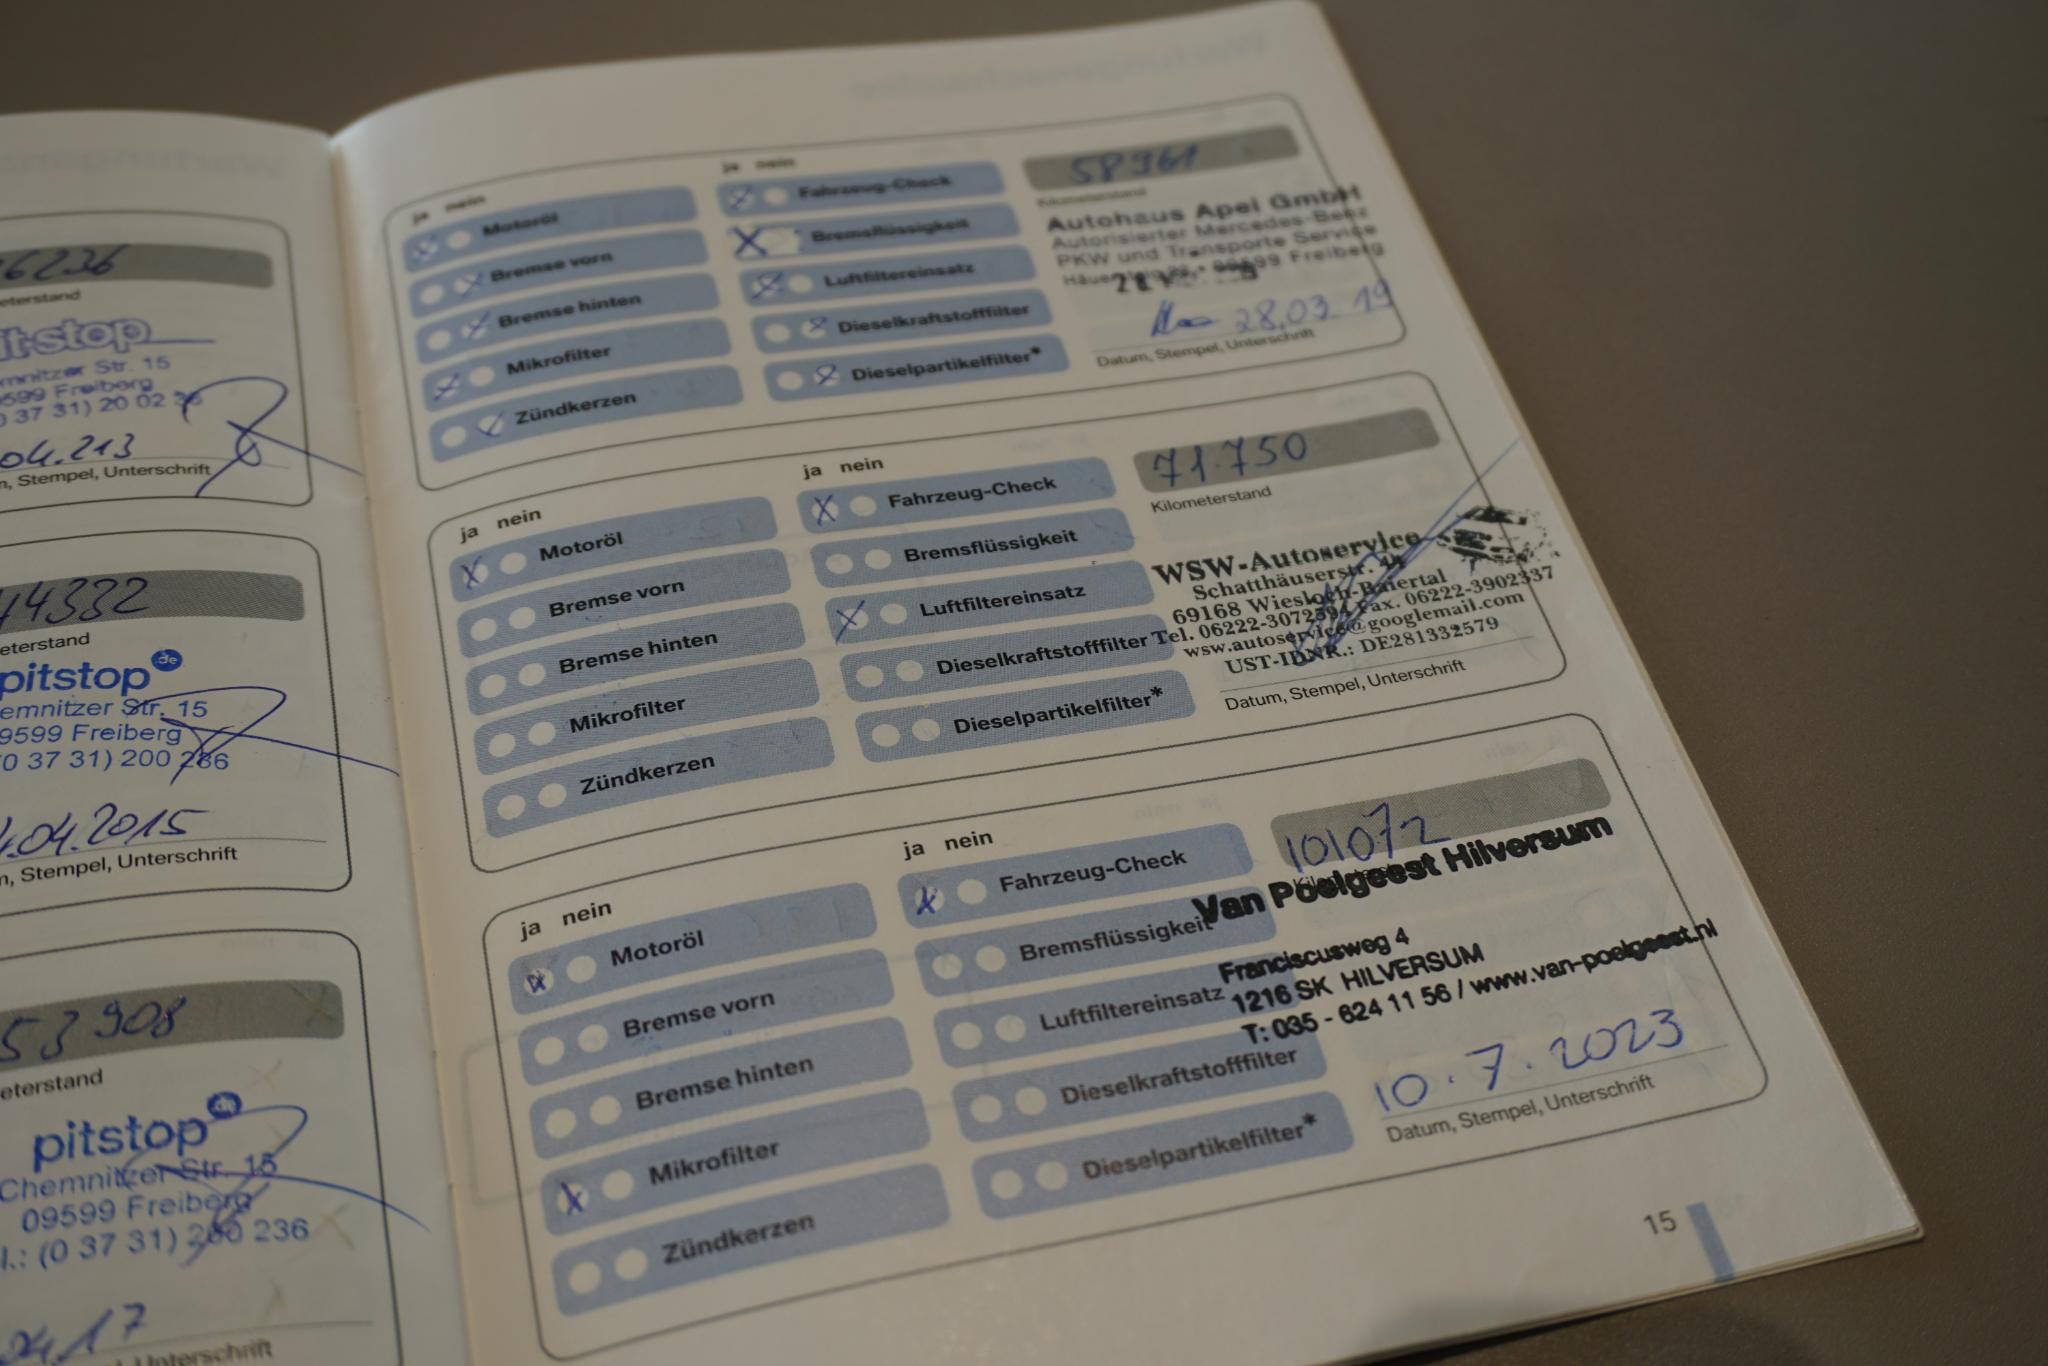 6236
eterstand
it-stop
mnitzer Str. 15
9599 Freiberg
0 37 31) 20 02 36
04.213
m, Stempel, Unterschrift
44332
eterstand
pitstop de
emnitzer Str. 15
9599 Freiberg
(0 37 31) 200 236
.04.2015
m, Stempel, Unterschrift
53908
meterstand
pitstop de
Chemnitzer Str. 15
09599 Freiberg
l.: (0 37 31) 200 236
04.17
m, Stempel, Unterschrift
ja nein
Motoröl
Bremse vorn
Bremse hinten
Mikrofilter
Zündkerzen
ja nein
Fahrzeug-Check
Bremsflüssigkeit
Luftfiltereinsatz
Dieselkraftstofffilter
Dieselpartikelfilter*
58961
Kilometerstand
Autohaus Apel GmbH
Autorisierter Mercedes-Benz
PKW und Transporte Service
09599 Freiberg
28.03.19
Datum, Stempel, Unterschrift
ja nein
Motoröl
Bremse vorn
Bremse hinten
Mikrofilter
Zündkerzen
ja nein
Fahrzeug-Check
Bremsflüssigkeit
Luftfiltereinsatz
Dieselkraftstofffilter
Dieselpartikelfilter*
71.750
Kilometerstand
WSW-Autoservice
Schatthäuserstr. 44
69168 Wiesloch-Baiertal
Tel. 06222-3072594 Fax. 06222-3902337
wsw.autoservice@googlemail.com
UST-IDNR.: DE281332579
Datum, Stempel, Unterschrift
ja nein
Motoröl
Bremse vorn
Bremse hinten
Mikrofilter
Zündkerzen
ja nein
Fahrzeug-Check
Bremsflüssigkeit
Luftfiltereinsatz
Dieselkraftstofffilter
Dieselpartikelfilter*
101072
Van Poelgeest Hilversum
Franciscusweg 4
1216 SK HILVERSUM
T: 035 - 624 11 56 / www.van-poelgeest.nl
10.7.2023
Datum, Stempel, Unterschrift
15